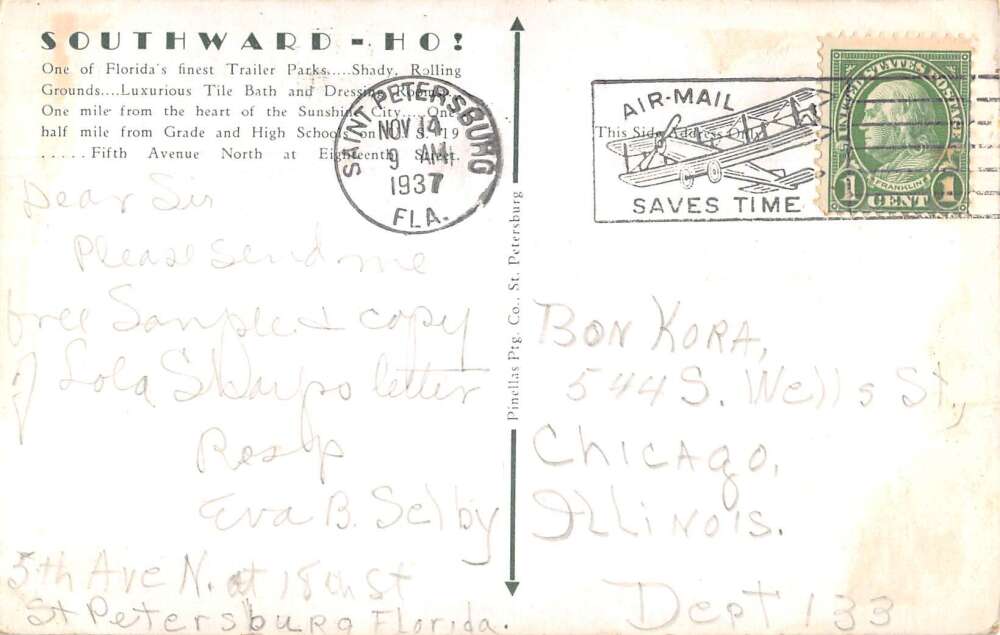 SOUTHWARD - HO!
One of Florida's finest Trailer Parks.....Shady, Rolling
Grounds....Luxurious Tile Bath and Dressing Rooms...
One mile from the heart of the Sunshine City....One
half mile from Grade and High Schools on U. S. 19
.....Fifth Avenue North at Eighteenth Street.
SAINT PETERSBURG
NOV 14
9 AM
1937
FLA.
Dear Sir
Please send me
free Sample & copy
of Lola Sharps letter
Resp
Eva B. Selby
5th Ave N. at 18th St
St Petersburg Florida.
Pinellas Ptg. Co., St. Petersburg
AIR-MAIL
SAVES TIME
This Side Address Only
UNITED STATES POSTAGE
FRANKLIN
1 CENT 1
BON KORA,
544 S. Wells St,
Chicago,
Illinois.
Dept 133